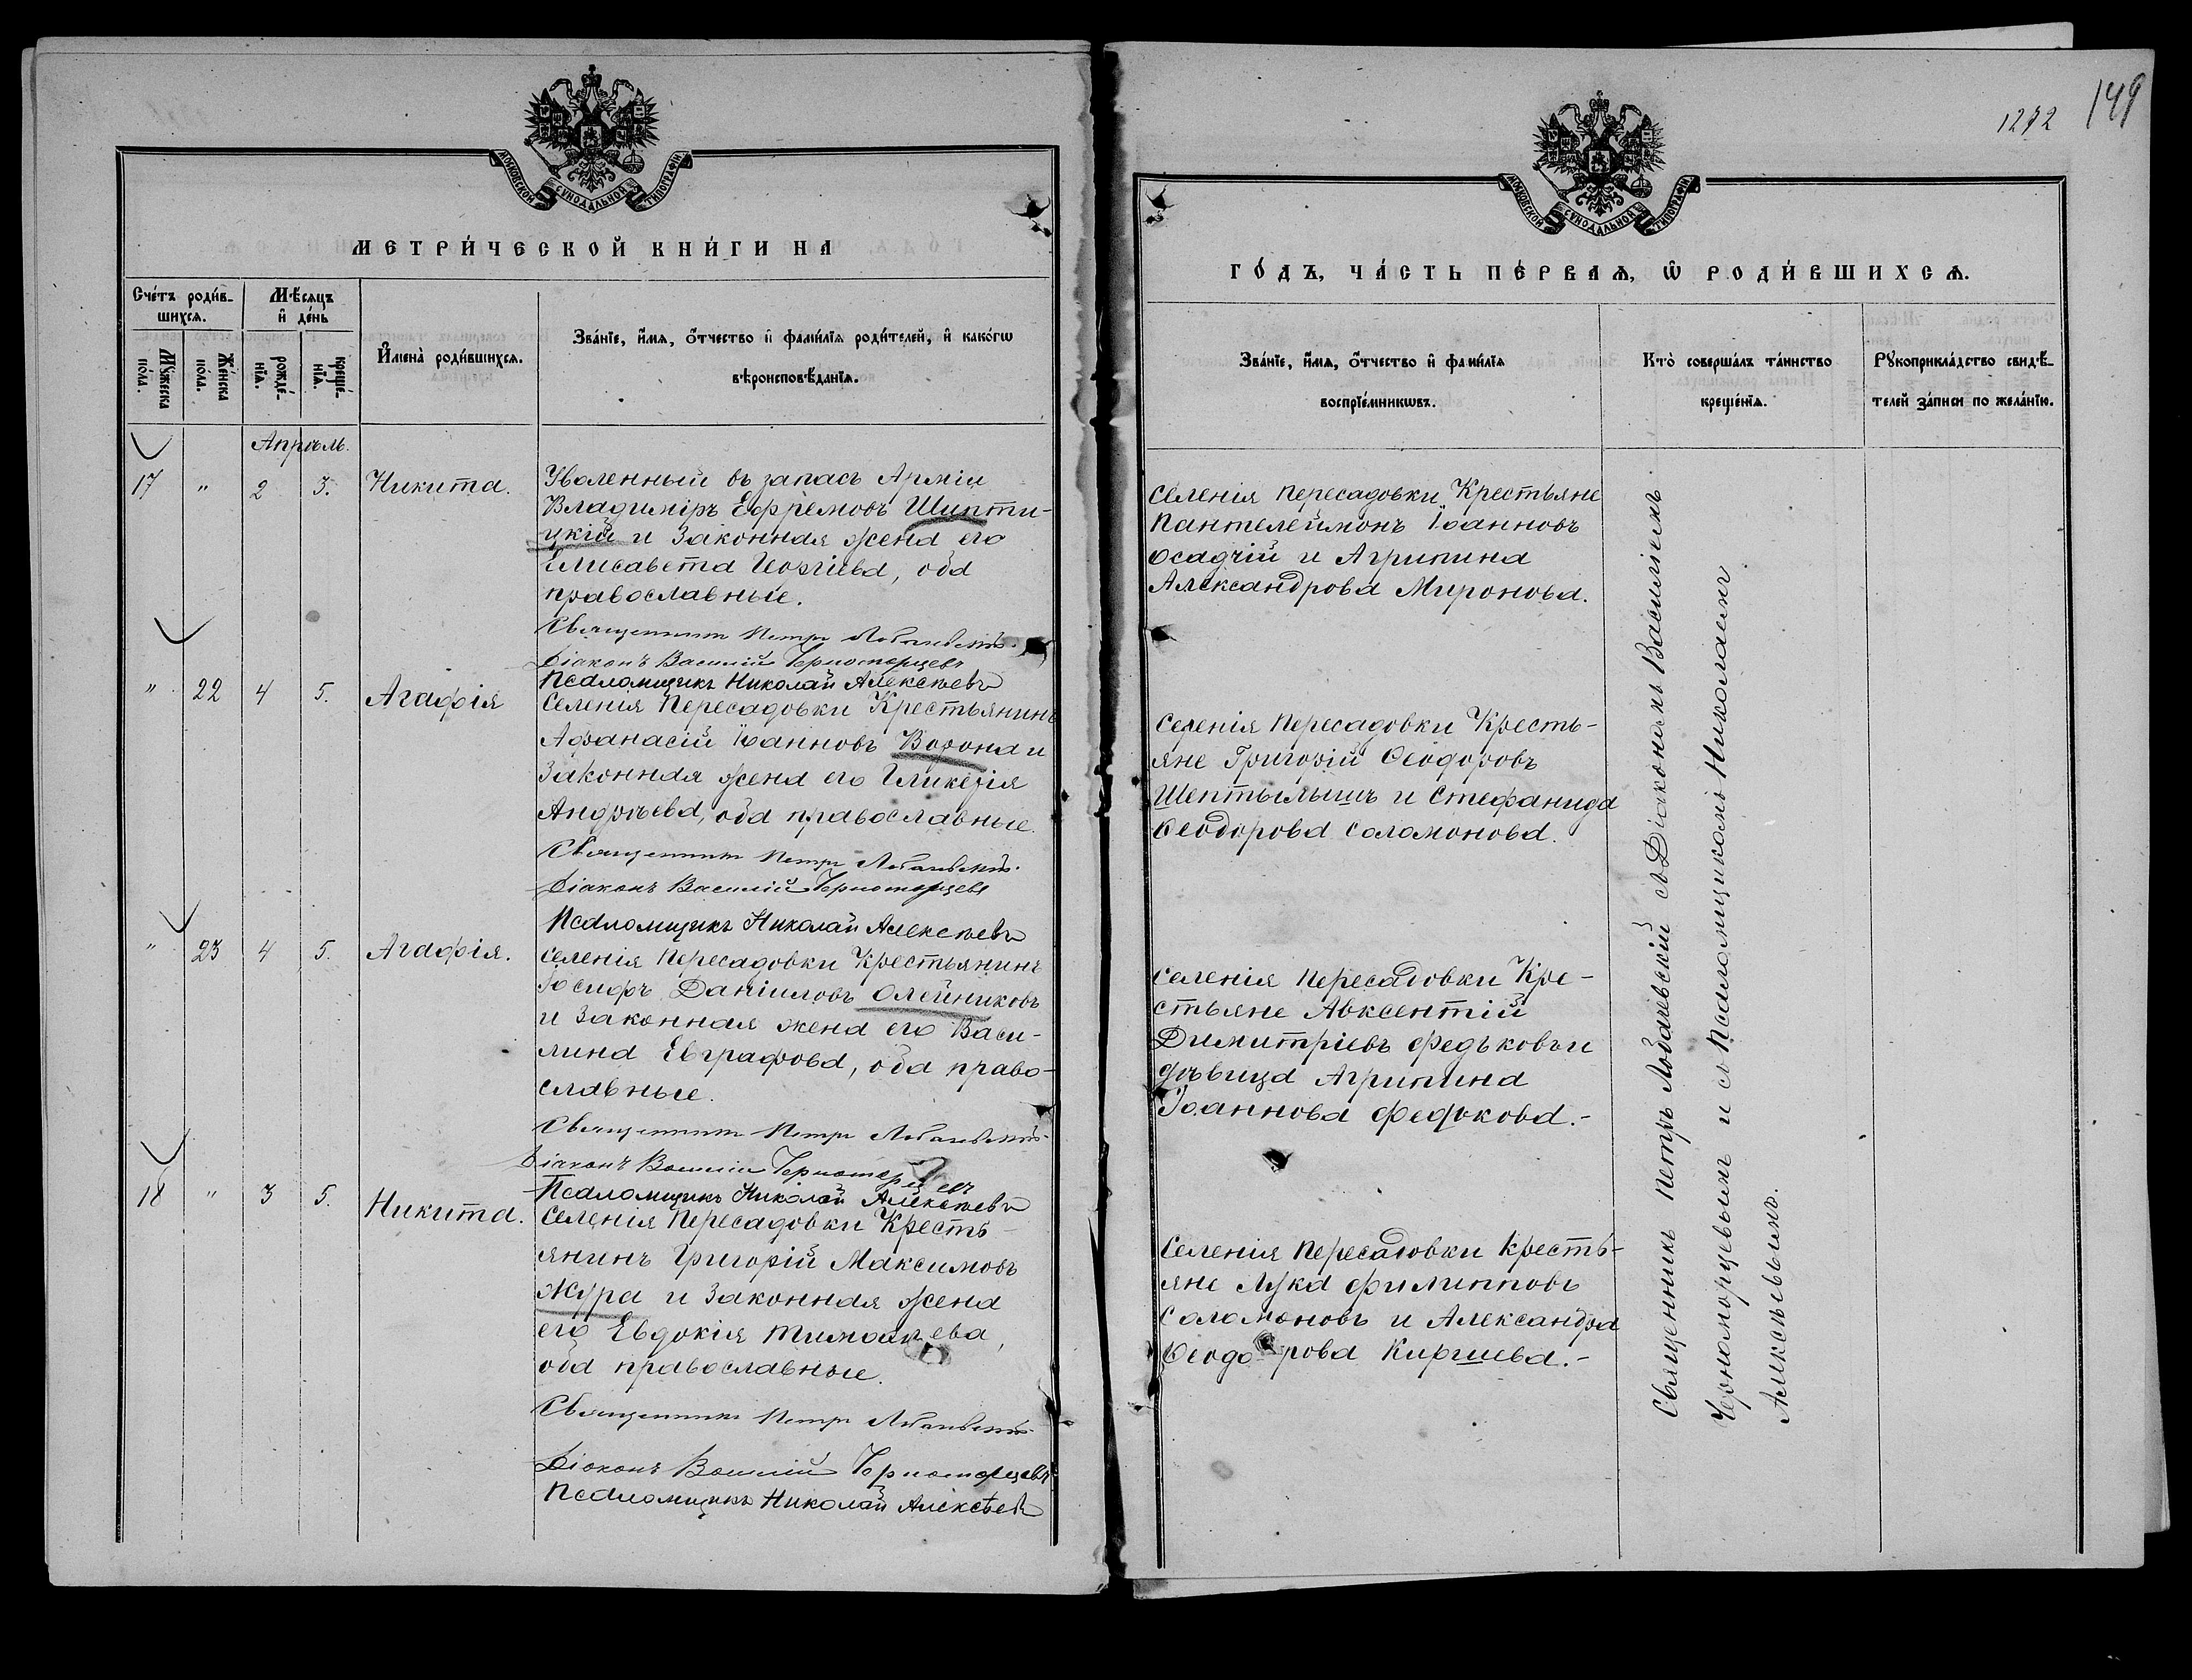 МОСКОВСКОЙ СѴНОДАЛЬНОЙ ТИПОГРАФІИ
МЕТРИ́ЧЕСКОЙ КНИ́ГИ НА
Сче́тъ роди́в-
шихся.
Мѣ́сяцъ
и҆ де́нь
Мꙋ́жеска
по́ла.
Же́нска
по́ла.
рожде́-
нїѧ.
креще́-
нїѧ.
И҆мена̀ роди́вшихсѧ.
Зва́нїе, и҆́мѧ, ѻ҆́тчество и҆ фами́лїѧ роди́телей, и҆ како́гѡ
вѣроисповѣ́данїѧ.
Апрѣль.
17 " 2 3. Никита.
Уволенный въ запасъ Арміи
Владиміръ Ефремовъ Шипти-
цкій и законная жена его
Елисавета Георгіева, оба
православные.
Священникъ Петръ Лобачевскій.
Діаконъ Василій Черноморцевъ
Псаломщикъ Николай Алексѣевъ
" 22 4 5. Агафія
Селенія Пересадовки Крестьянинъ
Афанасій Іоанновъ Ворона и
законная жена его Гликерія
Андреева, оба православные.
Священникъ Петръ Лобачевскій.
Діаконъ Василій Черноморцевъ
Псаломщикъ Николай Алексѣевъ
" 23 4 5. Агафія.
Селенія Пересадовки Крестьянинъ
Іосифъ Даніиловъ Олейниковъ
и законная жена его Васи-
лина Евграфова, оба право-
славные.
Священникъ Петръ Лобачевскій.
Діаконъ Василій Черноморцевъ
Псаломщикъ Николай Алексѣевъ
18 " 3 5. Никита.
Селенія Пересадовки Кресть-
янинъ Григорій Максимовъ
Жура и законная жена
его Евдокія
оба православные.
Священникъ Петръ Лобачевскій.
Діаконъ Василій Черноморцевъ
Псаломщикъ Николай Алексѣевъ
149
1272
МОСКОВСКОЙ СѴНОДАЛЬНОЙ ТИПОГРАФІИ
ГО́ДЪ, ЧА́СТЬ ПЕ́РВАѦ, Ѽ РОДИ́ВШИХСѦ.
Зва́нїе, и҆́мѧ, ѻ҆́тчество и҆ фами́лїѧ
воспрїе́мникѡвъ.
Кто̀ соверша́лъ та́инство
креще́нїѧ.
Рꙋкоприкла́дство свидѣ́-
телей за́писи по жела́нїю.
Селенія Пересадовки Крестьяне
Пантелеймонъ Іоанновъ
Осадчій и Агрипина
Александрова Миронова.
Селенія Пересадовки Кресть-
яне Григорій Ѳеодоровъ
Шептылышъ и Стефанида
Ѳеодорова Соломонова.
Селенія Пересадовки Кре-
стьяне Авксентій
Димитріевъ Федьковъ и
дѣвица Агрипина
Іоаннова Федькова.-
Селенія Пересадовки Кресть-
яне Лука Филипповъ
Соломоновъ и Александра
Ѳеодорова Киршева.-
Священникъ Петръ Лобачевскій съ Діакономъ Василіемъ
Черноморцевымъ и съ Псаломщикомъ Николаемъ
Алексѣевымъ.